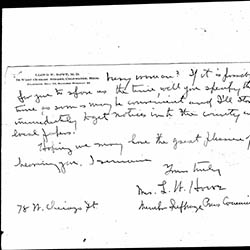 many women? If it is possible
for you to spare us the time will you specify the
time as soon as may be convenient and I'll start
immediately to get notices into the country and
local papers.
Hoping we may have the great pleasure of
hearing you, I remain
Yours truly
Mrs. L. W. Howe
Member Suffrage Press Committee
78 W. Chicago St